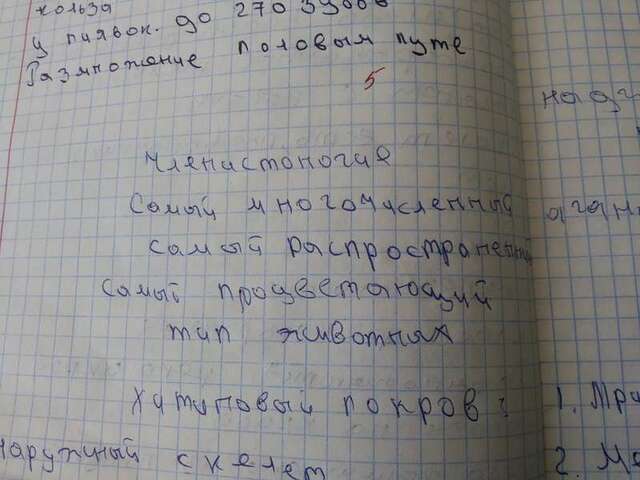 кольза
у пиявок. до 270 39000
Размножение половым путе
5
Членистоногие
Самый многочисленный
самый распространенны
Самый процветающий
тип животных
Хатиновый покров :
наружный скелет
наду
аган
1. Мра
2. Ме